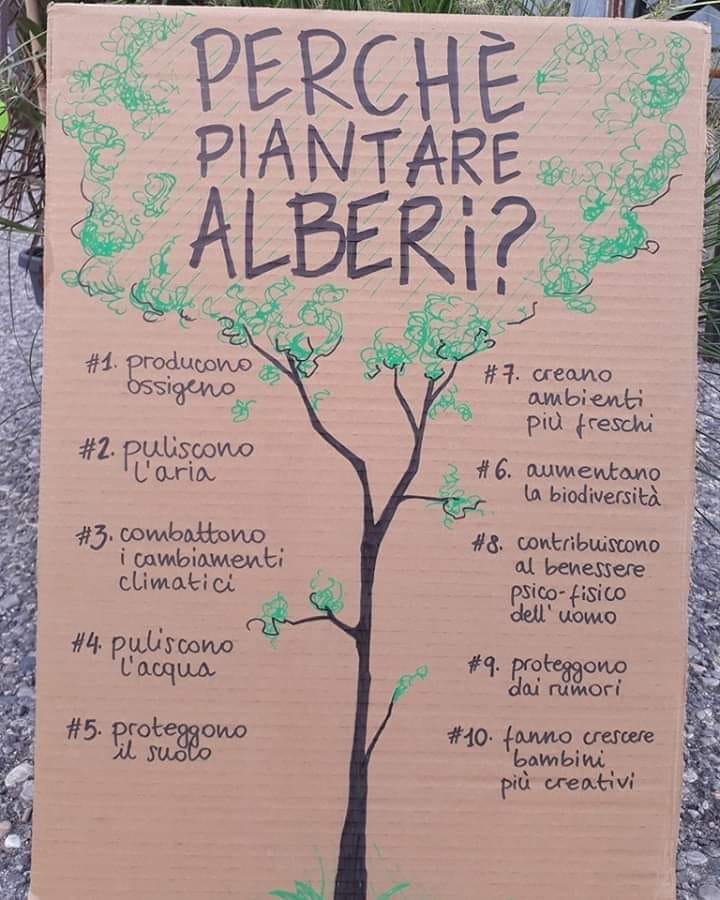 PERCHÈ
PIANTARE
ALBERi?
#1. producono
ossigeno
#2. puliscono
l'aria
#3. combattono
i cambiamenti
climatici
#4. puliscono
l'acqua
#5. proteggono
il suolo
#7. creano
ambienti
più freschi
#6. aumentano
la biodiversità
#8. contribuiscono
al benessere
psico-fisico
dell'uomo
#9. proteggono
dai rumori
#10. fanno crescere
bambini
più creativi